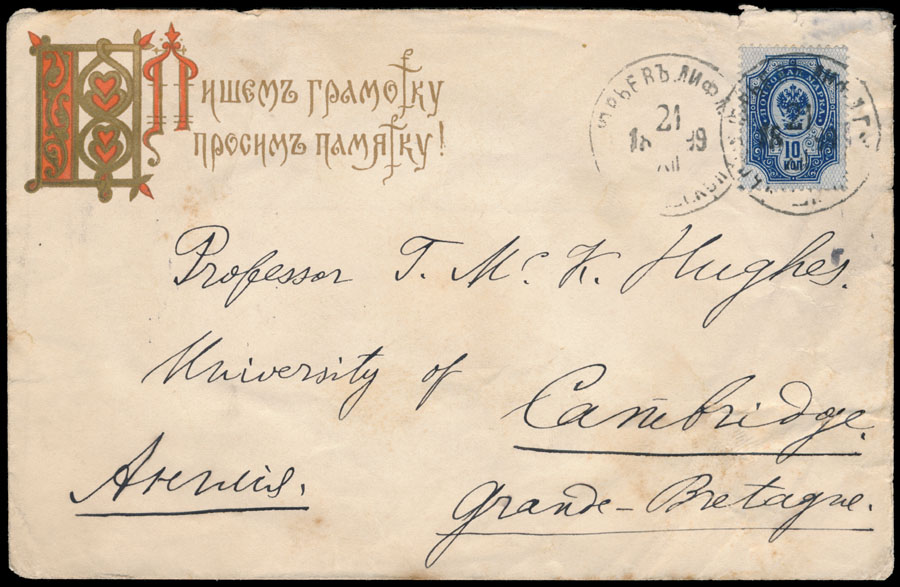 Пишемъ грамотку
просимъ памятку!
ЮРЬЕВЪ ЛИФЛ.
21
18 99
XII
ПОЧТОВАЯ МАРКА
10
КОП.
Professor T. McK. Hughes.
University of
Cambridge.
Англія.
Grande-Bretagne.